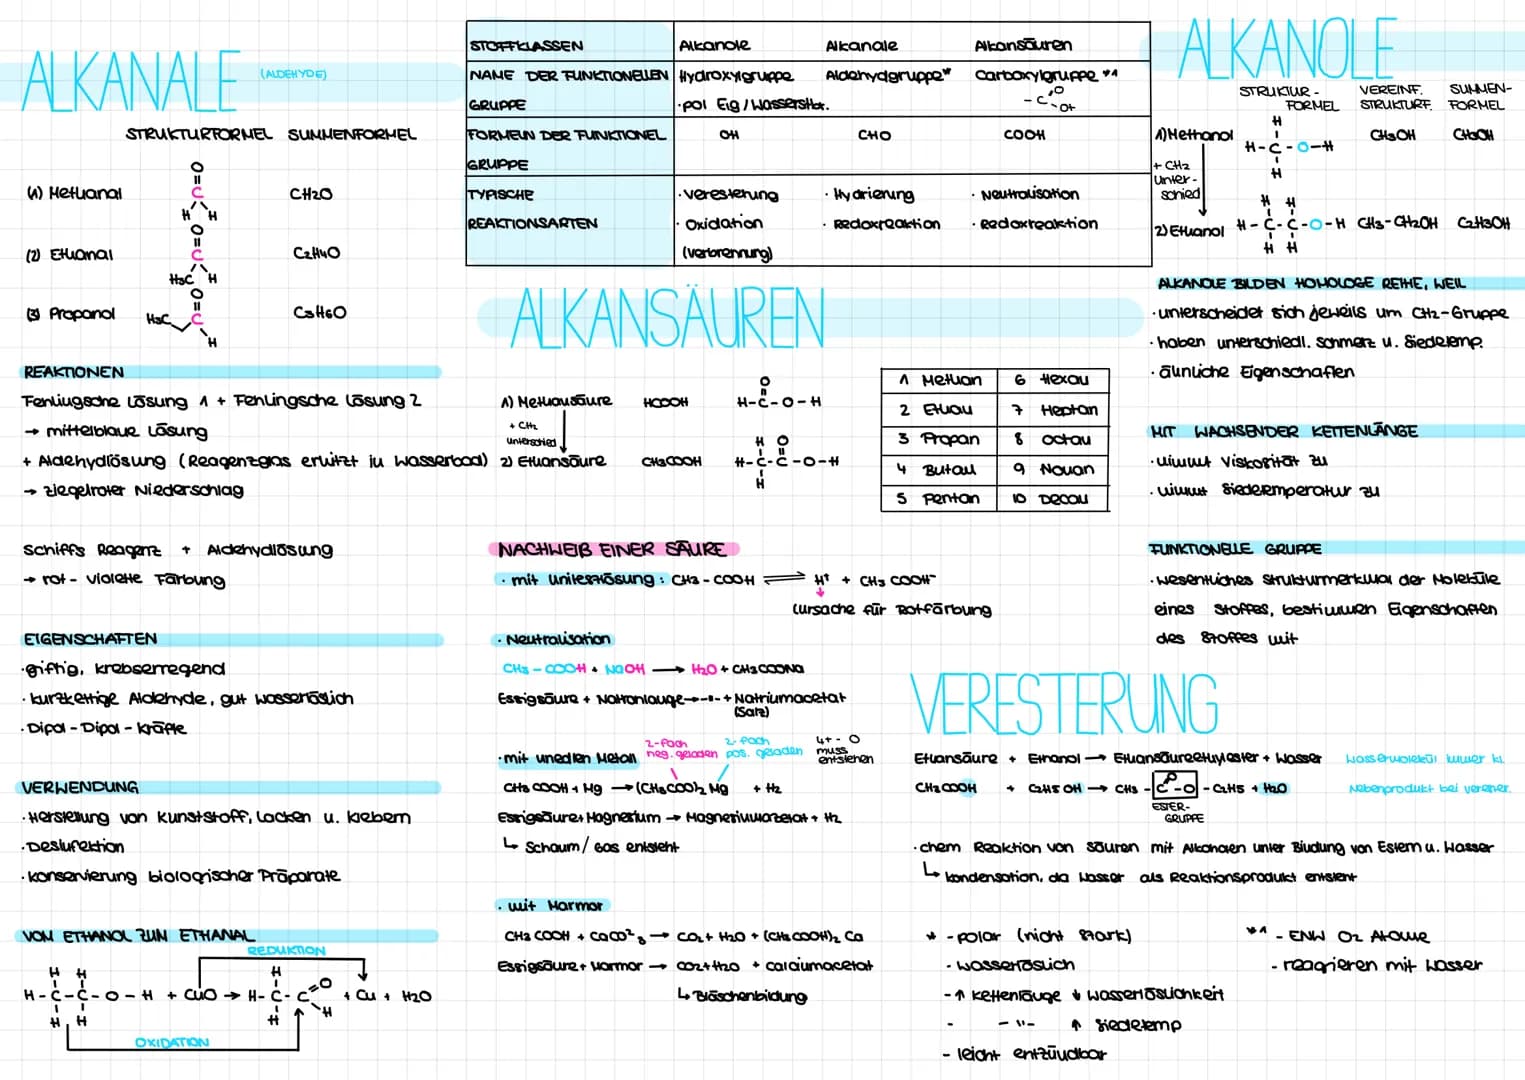 ALKANALE (ALDEHYDE)
STRUKTURFORMEL SUMMENFORMEL
(1) Methanal
O
=
C
H H
CH2O
(2) Ethanal
O
=
C
H3C H
C2H4O
(3) Propanal
O
=
H3C C
H
C3H6O
REAKTIONEN
Fehlingsche Lösung 1 + Fehlingsche Lösung 2
→ mittelblaue Lösung
+ Aldehydlösung (Reagenzglas erhitzt in Wasserbad)
→ ziegelroter Niederschlag
Schiffs Reagenz + Aldehydlösung
→ rot - violette Färbung
EIGENSCHAFTEN
· giftig, krebserregend
· kurzkettige Aldehyde, gut wasserlöslich
· Dipol - Dipol - Kräfte
VERWENDUNG
· Herstellung von Kunststoff, Lacken u. Klebern
· Desinfektion
· Konservierung biologischer Präparate
VOM ETHANOL ZUM ETHANAL
REDUKTION
H H H
H-C-C-O-H + CuO → H-C-C=O + Cu + H2O
H H H H
OXIDATION
STOFFKLASSEN Alkanole Alkanale Alkansäuren
NAME DER FUNKTIONELLEN GRUPPE Hydroxylgruppe Aldehydgruppe* Carboxylgruppe *1
· pol Eig / Wasserstof. -C O OH
FORMELN DER FUNKTIONEL GRUPPE OH CHO COOH
TYPISCHE REAKTIONSARTEN · Veresterung · Hydrierung · Neutralisation
· Oxidation · Redoxreaktion · Redoxreaktion
(Verbrennung)
ALKANSÄUREN
1) Methansäure HCOOH
O
=
H-C-O-H
+ CH2
Unterschied
2) Ethansäure CH3COOH
H O
H-C-C-O-H
H
1 Methan 6 Hexan
2 Ethan 7 Heptan
3 Propan 8 Octan
4 Butan 9 Nonan
5 Pentan 10 Decan
NACHWEIß EINER SÄURE
· mit Unitestlösung: CH3 - COOH ⇌ H+ + CH3 COOH-
(Ursache für Rotfärbung
· Neutralisation
CH3 - COOH + NaOH → H2O + CH3COONa
Essigsäure + Natronlauge → -"- + Natriumacetat
(Salz)
· mit unedlen Metall
2-fach neg. geladen
2-fach pos. geladen
4+ - O muss entstehen
CH3 COOH + Mg → (CH3COO)2 Mg + H2
Essigsäure + Magnesium → Magnesiumacetat + H2
↳ Schaum / Gas entsteht
· mit Marmor
CH3 COOH + CaCO²3 → CO2 + H2O + (CH3COOH)2 Ca
Essigsäure + Marmor → CO2 + H2O + Calciumacetat
↳ Bläschenbildung
ALKANOLE
STRUKTUR - FORMEL VEREINF. STRUKTURF. SUMMEN- FORMEL
1) Methanol
H
H-C-O-H
H
CH3OH CH3OH
+ CH2
Unter-
schied
2) Ethanol
H H
H-C-C-O-H
H H
CH3-CH2OH C2H5OH
ALKANOLE BILDEN HOMOLOGE REIHE, WEIL
· unterscheidet sich jeweils um CH2-Gruppe
· haben unterschiedl. Schmelz u. Siedetemp.
· ähnliche Eigenschaften
MIT WACHSENDER KETTENLÄNGE
· nimmt Viskosität zu
· nimmt Siedetemperatur zu
FUNKTIONELLE GRUPPE
· wesentliches Strukturmerkmal der Moleküle
eines Stoffes, bestimmen Eigenschaften
des Stoffes mit
VERESTERUNG
Ethansäure + Ethanol → Ethansäureethylester + Wasser
Wassermolekül immer kl.
CH3COOH + C2H5OH → CH3 - C O -O - C2H5 + H2O
Nebenprodukt bei verester.
ESTER-
GRUPPE
· chem Reaktion von Säuren mit Alkoholen unter Bildung von Estern u. Wasser
↳ Kondensation, da Wasser als Reaktionsprodukt entsteht
* - polar (nicht stark)
- wasserlöslich
- ↑ Kettenlänge ↓ Wasserlöslichkeit
- -"- ↑ Siedetemp
- leicht entzündbar
*1 - ENW O2 Atome
- reagieren mit Wasser